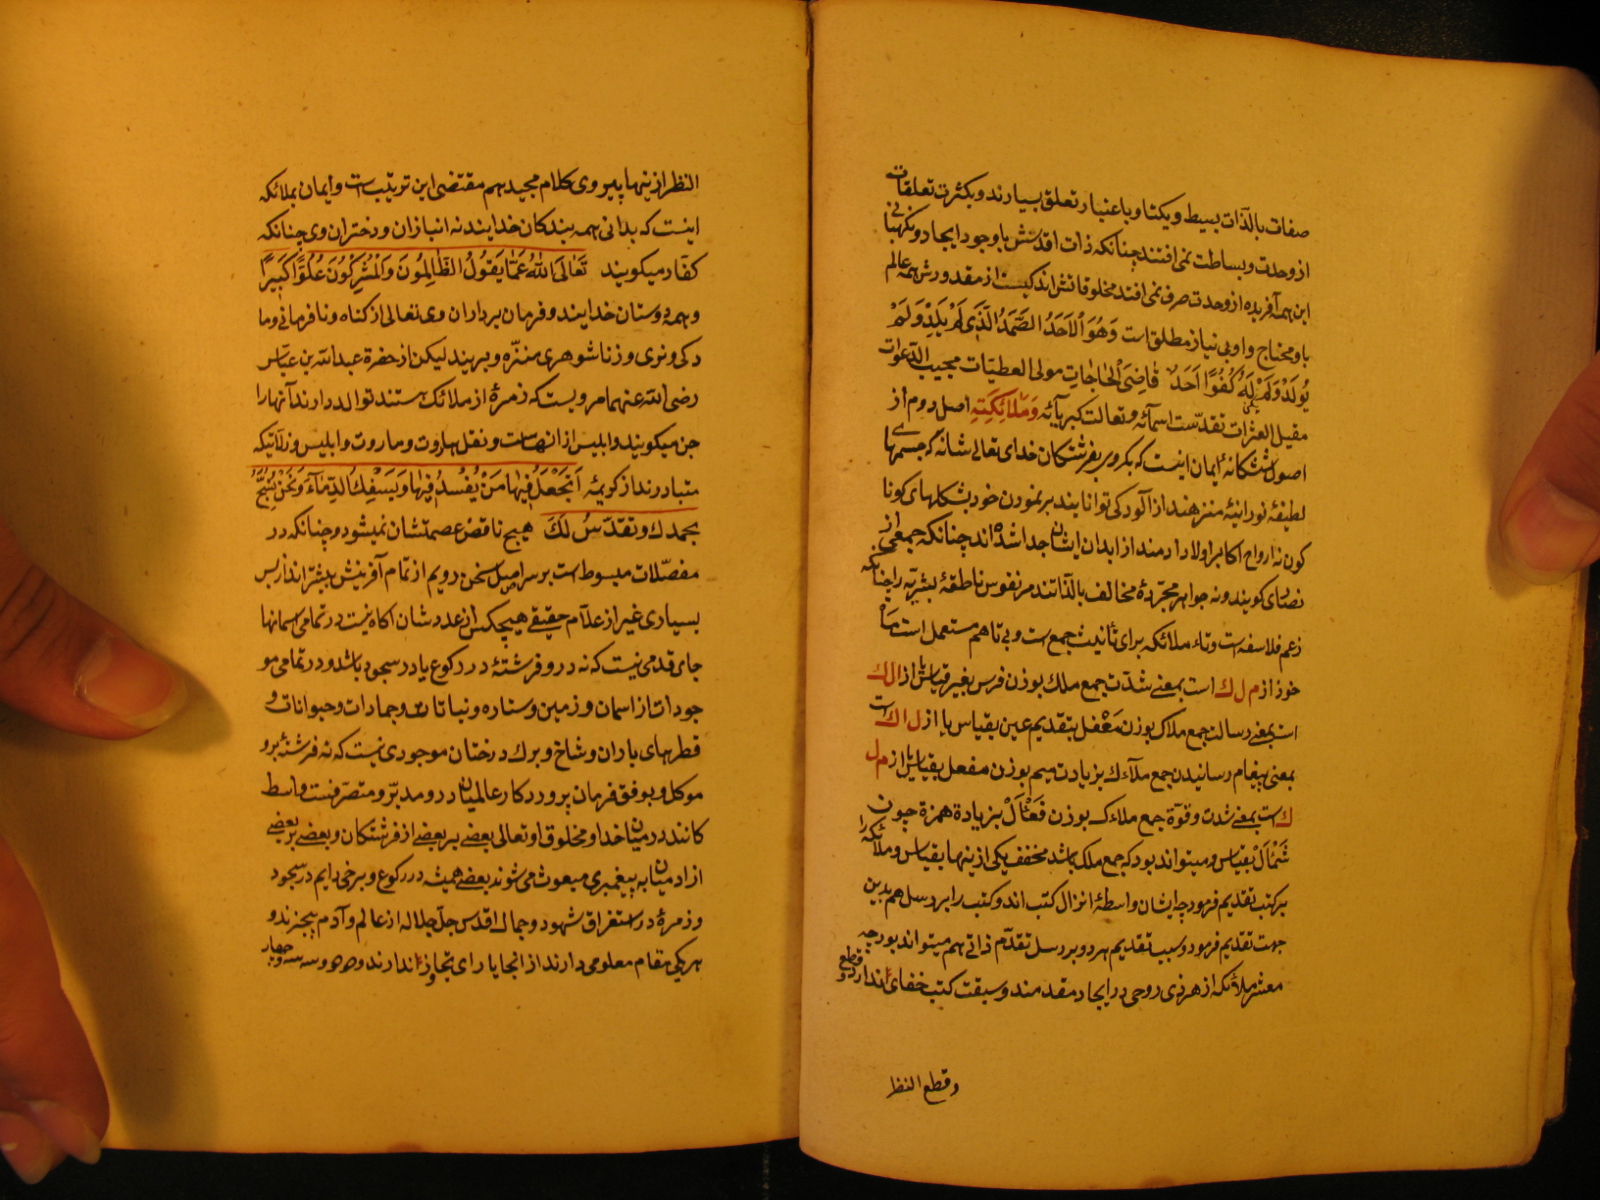 صفات بالذات بسیط و یکتا و باعتبار تعلق بسیارند و بکثرت تعلقات
از وحدت و بساطت نمی افتند چنانکه ذات اقدسش با وجود ایجاد و نکهبانی
این همه آفریده از وحدت صرف نمی افتد مخلوقاتش اند کیست از مقدورش همه عالم
باو محتاج و او بی نیاز مطلق است وَهُوَ الْاَحَدُ الصَّمَدُ الَّذِی لَمْ یَلِدْ وَلَمْ
یُولَدْ وَلَمْ یَکُنْ لَهُ کُفُوًا اَحَدٌ قَاضِیَ الْحَاجَاتِ مولی العطیّات مجیب الدّعوات
مقیل العثرات تقدّست اسمآئه و تعالت کبریآئه وَمَلَائِکَتِهِ اصل دوم از
اصول ششکانهٔ ایمان اینست که بکروی بفرشتکان خدای تعالی شانه که جسمهای
لطیفهٔ نورانیهٔ منزهند از آلودکی توانایند بر نمودن خود بشکلهای کونا
کون نه ارواح اکابر اولاد آدمند از ابدان ایشان جدا شده اند چنانکه جمعی از
نصارای کویند و نه جواهر مجرّدهٔ مخالف بالذاتند مر نفوس ناطقهٔ بشریه را چنانکه
زعم فلاسفه است و تاء ملائکه برای تأنیث جمع ست و بی تا هم مستعمل است مأ
خوذ از م ل ك است بمعنی شدّت جمع ملك بوزن فرس بغیر قیاس یا از ال ك
است بمعنی رسالت جمع ملاك بوزن مَعْفل بتقدیم عین بقیاس یا از ل اك است
بمعنی پیغام رسانیدن جمع ملآءك بزیادت میم بوزن مفعل بقیاس یا از م ل
ك است بمعنی شدت و قوة جمع ملاءك بوزن فَعْأَلْ بزیادة همزة چون
شَمْأَلْ بقیاس و میتواند بود که جمع ملک باشد مخفف یکی از ینها بقیاس و ملائکه را
بر کتب تقدیم فرمود چه ایشان واسطهٔ انزال کتب اند و کتب را بر رسل هم بدین
جهت تقدیم فرمود و سبب تقدیم هر دو بر رسل تقدّم ذاتی هم میتواند بود چه
معشر ملائکه از هر ذی روحی در ایجاد مقدمند و سبقت کتب خفای ندارد و قطع
و قطع النظر
النظر از ینها پیروی کلام مجید هم مقتضی این ترتیب ست و ایمان بملائکه
اینست که بدانی همه بندکان خدایند نه انبازان و دختران وی چنانکه
کفّار میکویند تَعَالَی اللّٰهُ عَمَّا یَقُولُ الظَّالِمُونَ وَالْمُشْرِکُونَ عُلُوًّا کَبِیرًا
و همه دوستان خدایند و فرمان برداران وی تعالی از کناه و نافرمانی و ما
دکی و نری و زناشوهری منزّه و بریند لیکن از حضرة عبد الله بن عبّاس
رضی الله عنهما مرویست که زمرهٔ از ملائك هستند توالد دارند آنها را
جن میکویند و ابلیس از انهاست و نقل هاروت و ماروت و ابلیس و زلّتیکه
متبادرند از کریمهٔ اَتَجْعَلُ فِیهَا مَنْ یُفْسِدُ فِیهَا وَیَسْفِكُ الدِّمَاءَ وَنَحْنُ نُسَبِّحُ
بحمدك و نقدّسُ لَكَ هیچ ناقض عصمتشان نمیشود و چنانکه در
مفصّلات مبسوط ست بر سر اصل سخن رویم از تمام آفرینش بیشتر اند از بس
بسیاری غیر از علّام حقیقی هیچکس از عدد شان آکاه نیست در تمامی اسمانها
جای قدمی نیست که نه درو فرشتهٔ در رکوع یا در سجود باشد و در تمامی مو
جودات از اسمان و زمین و ستاره و نباتات و جمادات و حیوانات و
قطرهای باران و شاخ و برك درختان موجودی نیست که نه فرشتهٔ برو
موکل و بوفق فرمان پروردکار عالمیان درو مدبّر و متصرّفست واسط
کانند در میان خدا و مخلوق او تعالی بعضی بر بعضی از فرشتکان و بعضی بر بعضی
از ادمیان به پیغمبری مبعوث می شوند بعضی همیشه در رکوع و برخی دایم در سجود
و زمرهٔ در استغراق شهود و جمال اقدس جلّ جلاله از عالم و آدم بیخبرند و
هر یکی مقام معلومی دارند از انجا یارای تجاوز ندارند و دو دو و سه سه و چهار